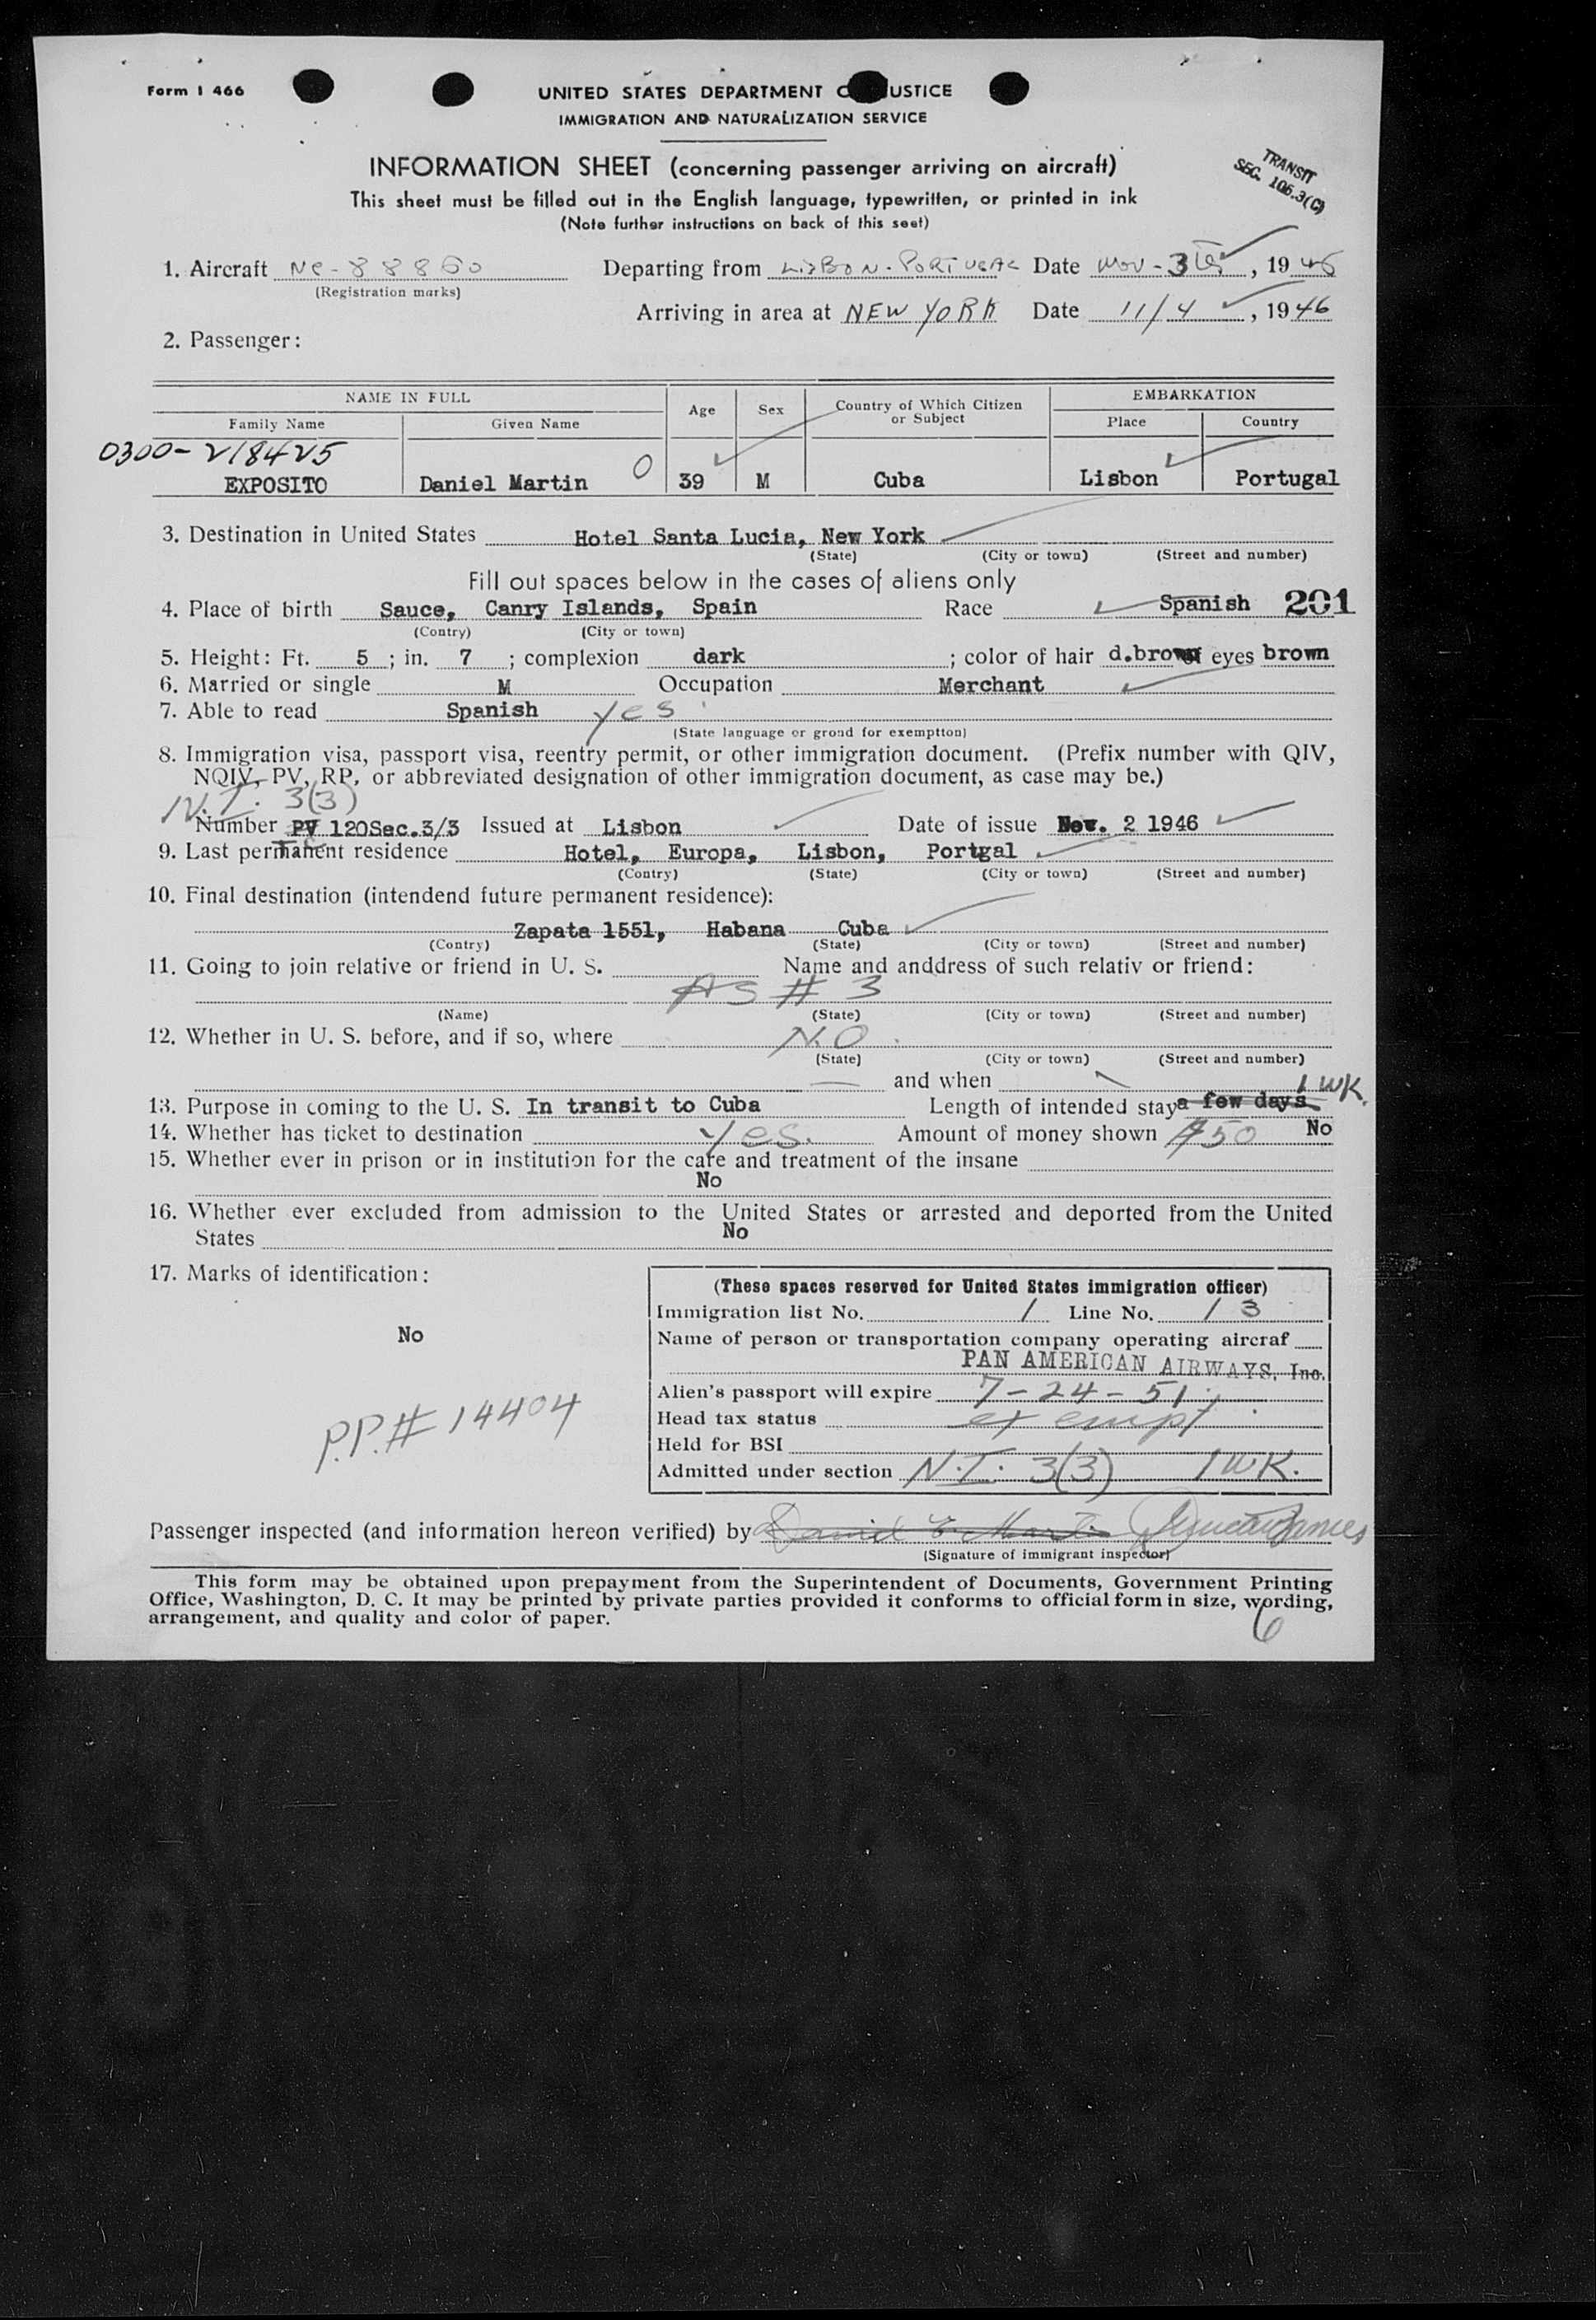 Form I 466
UNITED STATES DEPARTMENT O USTICE
IMMIGRATION AND NATURALIZATION SERVICE
INFORMATION SHEET (concerning passenger arriving on aircraft)
TRANSIT
SEC. 106.3(C)
This sheet must be filled out in the English language, typewritten, or printed in ink
(Note further instructions on back of this seet)
1. Aircraft NC-88860 Departing from LISBON-PORTUGAL Date NOV-3 , 1946
(Registration marks)
Arriving in area at NEW YORK Date 11/4 , 1946
2. Passenger:
NAME IN FULL Age Sex Country of Which Citizen or Subject EMBARKATION
Family Name Given Name Place Country
0300-218425
EXPOSITO Daniel Martin O 39 M Cuba Lisbon Portugal
3. Destination in United States Hotel Santa Lucia, New York
(State) (City or town) (Street and number)
Fill out spaces below in the cases of aliens only
4. Place of birth Sauce, Canry Islands, Spain Race Spanish 201
(Contry) (City or town)
5. Height: Ft. 5 ; in. 7 ; complexion dark ; color of hair d.brown eyes brown
6. Married or single M Occupation Merchant
7. Able to read Spanish yes
(State language or grond for exemptton)
8. Immigration visa, passport visa, reentry permit, or other immigration document. (Prefix number with QIV,
NQIV, PV, RP, or abbreviated designation of other immigration document, as case may be.)
N.I. 3(3)
Number PV 120Sec.3/3 Issued at Lisbon Date of issue Nov. 2 1946
9. Last permanent residence Hotel, Europa, Lisbon, Portgal
(Contry) (State) (City or town) (Street and number)
10. Final destination (intendend future permanent residence):
Zapata 1551, Habana Cuba
(Contry) (State) (City or town) (Street and number)
11. Going to join relative or friend in U. S. Name and anddress of such relativ or friend:
AS # 3
(Name) (State) (City or town) (Street and number)
12. Whether in U. S. before, and if so, where NO
(State) (City or town) (Street and number)
— and when 1 WK.
13. Purpose in coming to the U. S. In transit to Cuba Length of intended stay a few days
14. Whether has ticket to destination Yes. Amount of money shown $750 No
15. Whether ever in prison or in institution for the care and treatment of the insane
No
16. Whether ever excluded from admission to the United States or arrested and deported from the United
States No
17. Marks of identification:
No
P.P.# 14404
(These spaces reserved for United States immigration officer)
Immigration list No. 1 Line No. 13
Name of person or transportation company operating aircraf
PAN AMERICAN AIRWAYS, Inc.
Alien's passport will expire 7-24-51
Head tax status exempt
Held for BSI
Admitted under section N.I. 3(3) 1 WK.
Passenger inspected (and information hereon verified) by Daniel E. Martin
(Signature of immigrant inspector)
This form may be obtained upon prepayment from the Superintendent of Documents, Government Printing
Office, Washington, D. C. It may be printed by private parties provided it conforms to official form in size, wording,
arrangement, and quality and color of paper.
6